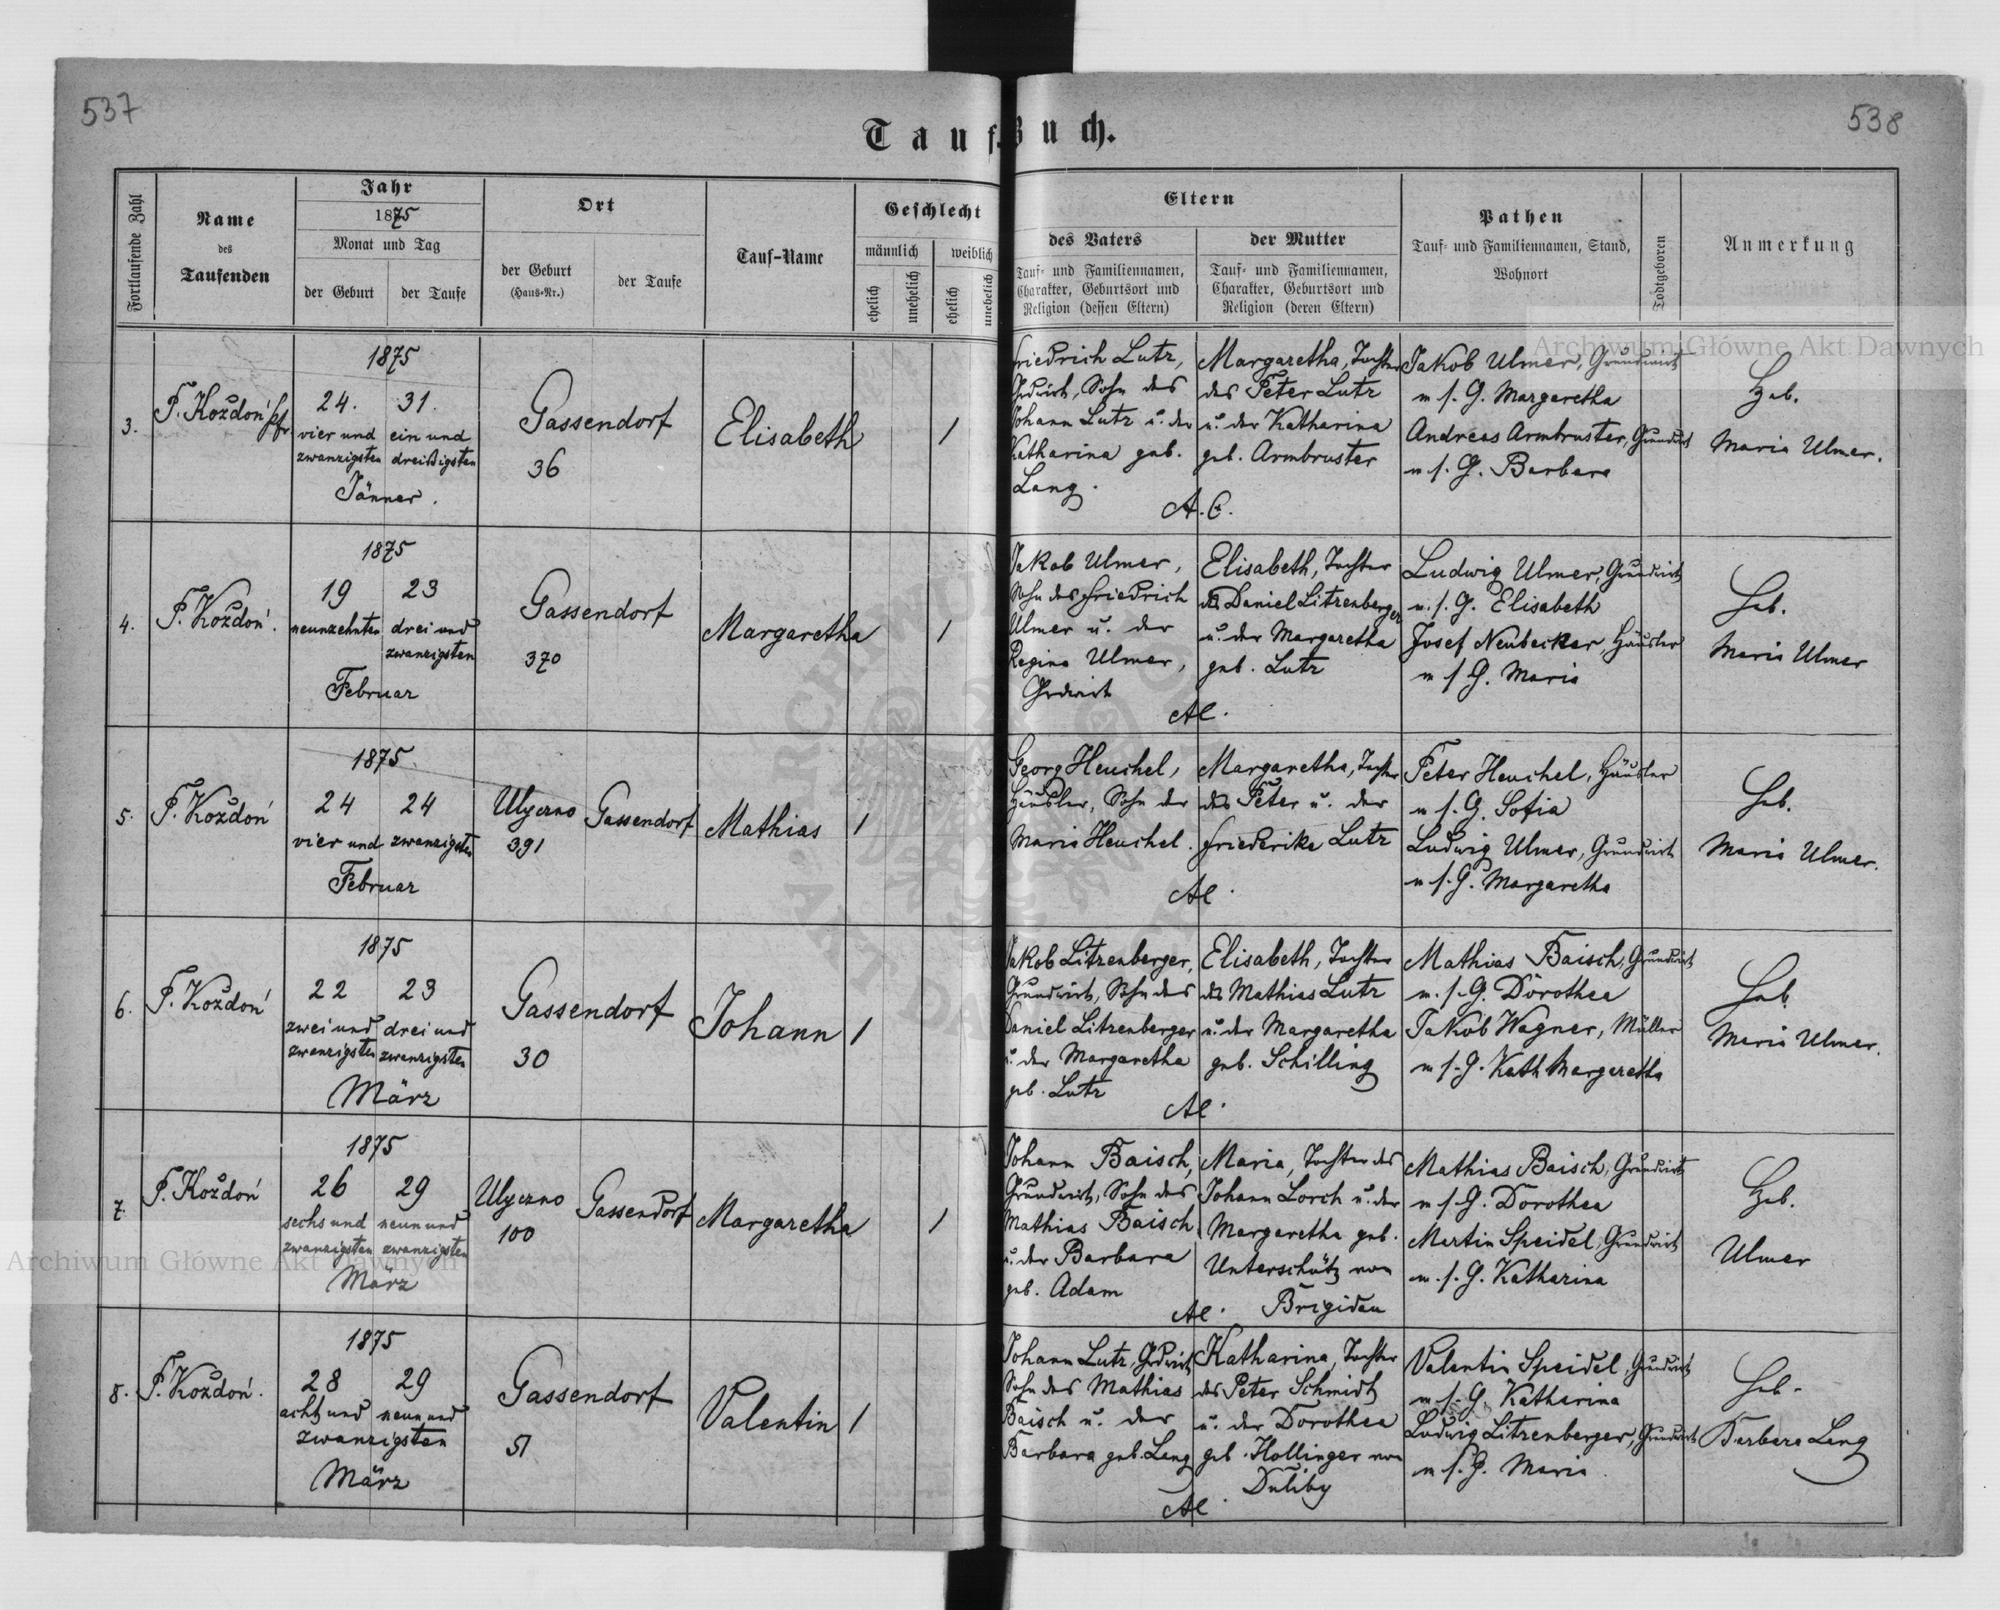 537
538
Tauf-Buch.
Fortlaufende Zahl
Name
des
Taufenden
Jahr
1875
Monat und Tag
der Geburt
der Taufe
Ort
der Geburt
(Haus-Nr.)
der Taufe
Tauf-Name
Geschlecht
männlich
weiblich
ehelich
unehelich
ehelich
unehelich
Eltern
des Vaters
Tauf- und Familiennamen,
Charakter, Geburtsort und
Religion (dessen Eltern)
der Mutter
Tauf- und Familiennamen,
Charakter, Geburtsort und
Religion (deren Eltern)
Pathen
Tauf- und Familiennamen, Stand,
Wohnort
Todtgeboren
Anmerkung
3.
F. Kozdoń Pfr
1875
24. 31.
vier und ein und
zwanzigsten dreißigsten
Jänner.
Gassendorf
36
Elisabeth
1
Friedrich Lutz,
Grdwirt, Sohn des
Johann Lutz u. der
Katharina geb.
Lang.
Margaretha, Tochter
des Peter Lutz
u. der Katharina
geb. Armbruster
A. C.
Jakob Ulmer, Grundwirt
m. s. G. Margaretha
Andreas Armbruster, Grundwirt
m. s. G. Barbara
Heb.
Maria Ulmer.
4.
F. Kozdoń.
1875
19 23
neunzehnten drei und
zwanzigsten
Februar
Gassendorf
370
Margaretha
1
Jakob Ulmer,
Sohn des Friedrich
Ulmer u. der
Regina Ulmer,
Grdwirt
Elisabeth, Tochter
des Daniel Litzenberger
u. der Margaretha
geb. Lutz
AC.
Ludwig Ulmer, Grundwirt
m. s. G. Elisabeth
Josef Neubecker, Häusler
m s G. Maria
Heb.
Maria Ulmer
5.
F. Kozdoń
1875
24 24
vier und zwanzigsten
Februar
Ulyczno
391
Gassendorf
Mathias
1
Georg Heuchel,
Häusler, Sohn der
Maria Heuchel.
Margaretha, Tochter
des Peter u. der
Friederike Lutz
AC.
Peter Heuchel, Häusler
m s. G. Sofia
Ludwig Ulmer, Grundwirt
m s. G. Margaretha
Heb.
Maria Ulmer.
6.
F. Kozdoń
1875
22 23
zwei und drei und
zwanzigsten zwanzigsten
März
Gassendorf
30
Johann
1
Jakob Litzenberger,
Grundwirt, Sohn des
Daniel Litzenberger
u. der Margaretha
geb. Lutz
Elisabeth, Tochter
des Mathias Lutz
u. der Margaretha
geb. Schilling
AC.
Mathias Baisch, Grundwirt
m. s. G. Dorothea
Jakob Wagner, Müller
m s. G. Kath Margaretha
Heb.
Maria Ulmer.
7.
F. Kozdoń
1875
26 29
sechs und neun und
zwanzigsten zwanzigsten
März
Ulyczno
100
Gassendorf
Margaretha
1
Johann Baisch,
Grundwirt, Sohn des
Mathias Baisch
u. der Barbara
geb. Adam
Maria, Tochter des
Johann Lorch u. der
Margaretha geb.
Unterschütz von
Brigidau
AC.
Mathias Baisch, Grundwirt
m s. G. Dorothea
Martin Speidel, Grundwirt
m. s. G. Katharina
Heb.
Ulmer
8.
F. Kozdoń.
1875
28 29
acht und neun und
zwanzigsten
März
Gassendorf
51
Valentin
1
Johann Lutz, Grdwirt
Sohn des Mathias
Baisch u. der
Barbara geb. Lang
Katharina, Tochter
des Peter Schmidt
u. der Dorothea
geb. Hollinger von
Duliby
AC.
Valentin Speidel, Grundwirt
m s. G. Katharina
Ludwig Litzenberger, Grundwirt
m s. G. Maria
Heb.
Barbara Lang
Archiwum Główne Akt Dawnych
Archiwum Główne Akt Dawnych